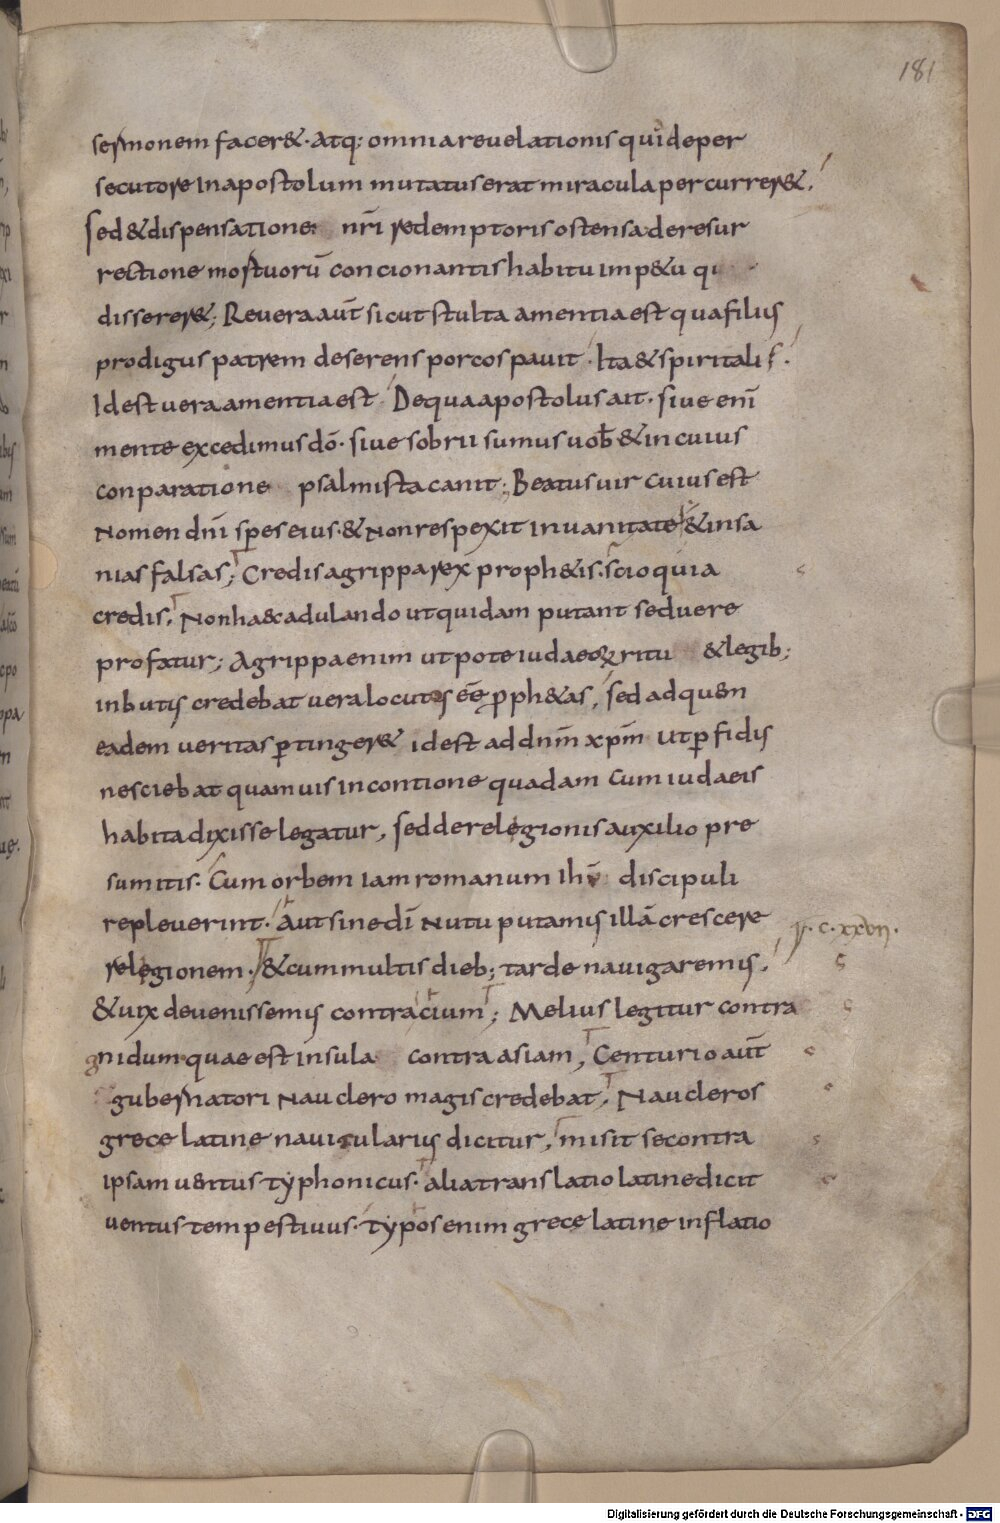 181
sermonem facer&. Atq: omnia reuelationis qui de per
secutore in apostolum mutatus erat miracula percurrer&.
sed & dispensatione: nr̄i redemptoris ostensa de resur
rectione mortuorū concionantis habitu imp&u
disserer&; Reuera aūt sicut stulta amentia est qua filius
prodigus patrem deserens porcos pauit. Ita & spiritalis.
Id est uera amentia est. De qua apostolus ait. siue enī
mente excedimus dō. siue sobrii sumus uob̄ & in cuius
conparatione psalmista canit; Beatus uir cuius est
Nomen dn̄i spes eius. & Non respexit in uanitate & insa
nias falsas; Credis agrippa rex proph&is. scio quia
credis. Non ha&c adulando ut quidam putant sed uere
profatur; Agrippa enim utpote iudaeoꝝ ritu & legib;
inbutis credebat uera locutos eē ꝓph&as, sed ad quen
eadem ueritas ꝑtinger& id est ad dn̄m xp̄m ut ꝑfidis
nesciebat quamuis in contione quadam cum iudaeis
habita dixisse legatur, sed de relegionis auxilio pre
sumitis. Cum orbem iam romanum ihū discipuli
repleuerint. Aut sine dī Nutu putamus illā crescere
relegionem. & cum multis dieb; tarde nauigaremus. c. xxvii.
& uix deuenissemus contra cium; Melius legitur contra
gnidum quae est insula contra asiam, Centurio aūt
gubernatori Nauclero magis credebat, Naucleros
grece latine nauicularius dicitur, misit se contra
ipsam uentus typhonicus. alia translatio latine dicit
uentus tempestiuus. typos enim grece latine inflatio
Digitalisierung gefördert durch die Deutsche Forschungsgemeinschaft - DFG